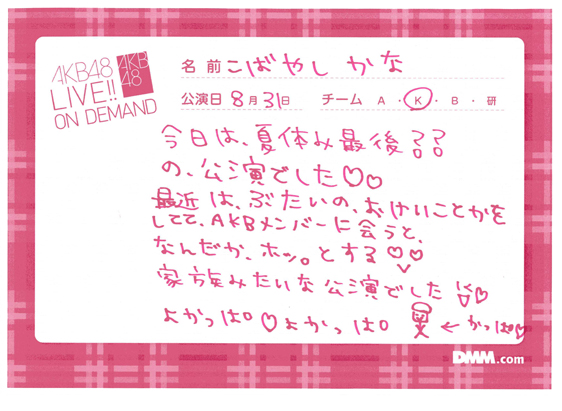 AKB48
LIVE!!
ON DEMAND
AKB
48
名前 こばやし かな
公演日 8月31日 チーム A・K・B・研
今日は、夏休み最後??
の、公演でした♡♡
最近は、ぶたいの、おけいことかを
してて、AKBメンバーに会うと、
なんだか、ホッ。とする♡♡
家族みたいな公演でした♡
よかっぱ♡よかっぱ
←かっぱ♡
DMM.com